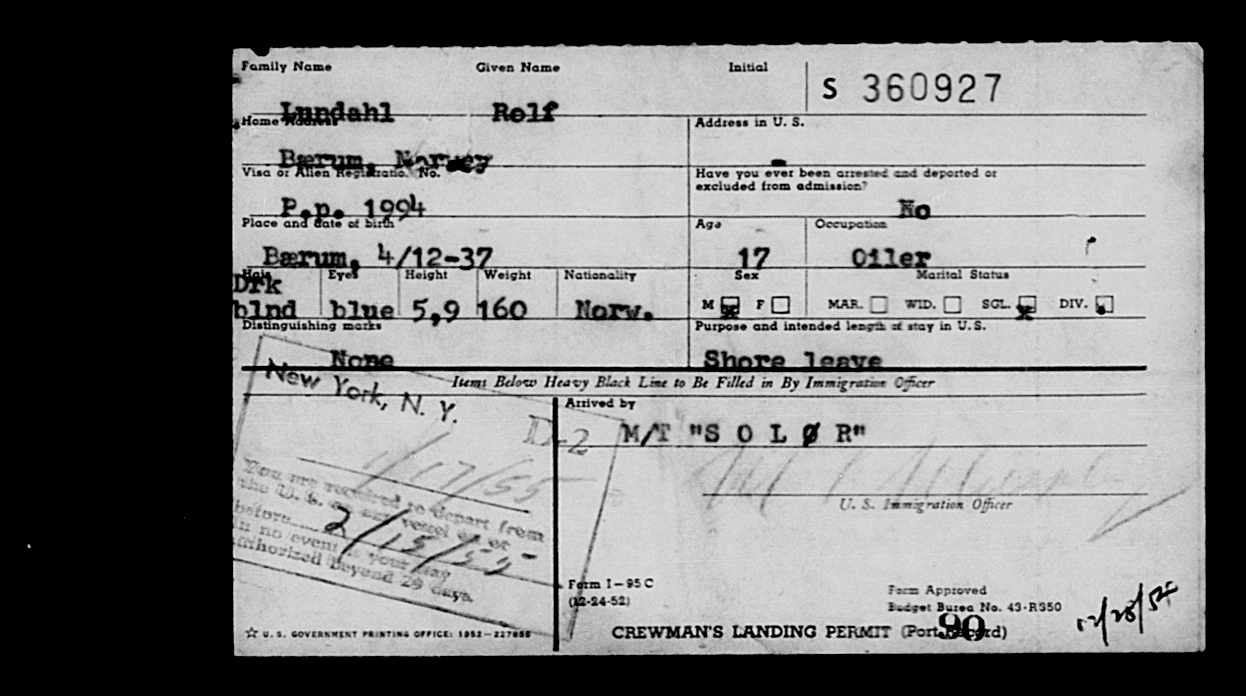 Family Name Given Name Initial
S 360927
Lundahl Rolf
Home Address Address in U. S.
Bærum, Norway -
Visa or Alien Registration No. Have you ever been arrested and deported or
excluded from admission?
P.p. 1994 No
Place and date of birth Age Occupation
Bærum, 4/12-37 17 Oiler
Hair Eyes Height Weight Nationality Sex Marital Status
Drk
blnd blue 5,9 160 Norw. M F MAR. WID. SGL. DIV.
x x
Distinguishing marks Purpose and intended length of stay in U. S.
None Shore leave
Items Below Heavy Black Line to Be Filled in By Immigration Officer
New York, N. Y.
D-2
1/17/55
You are required to depart from
the U. S. on any vessel on or
before 2/15/55
in no event is your stay
authorized beyond 29 days.
Arrived by
M/T "S O L Ø R"
U. S. Immigration Officer
Form I-95 C
(12-24-52)
Form Approved
Budget Bureau No. 43-R350
12/28/54
☆ U. S. GOVERNMENT PRINTING OFFICE: 1952-227856
CREWMAN'S LANDING PERMIT (Port Record)
90